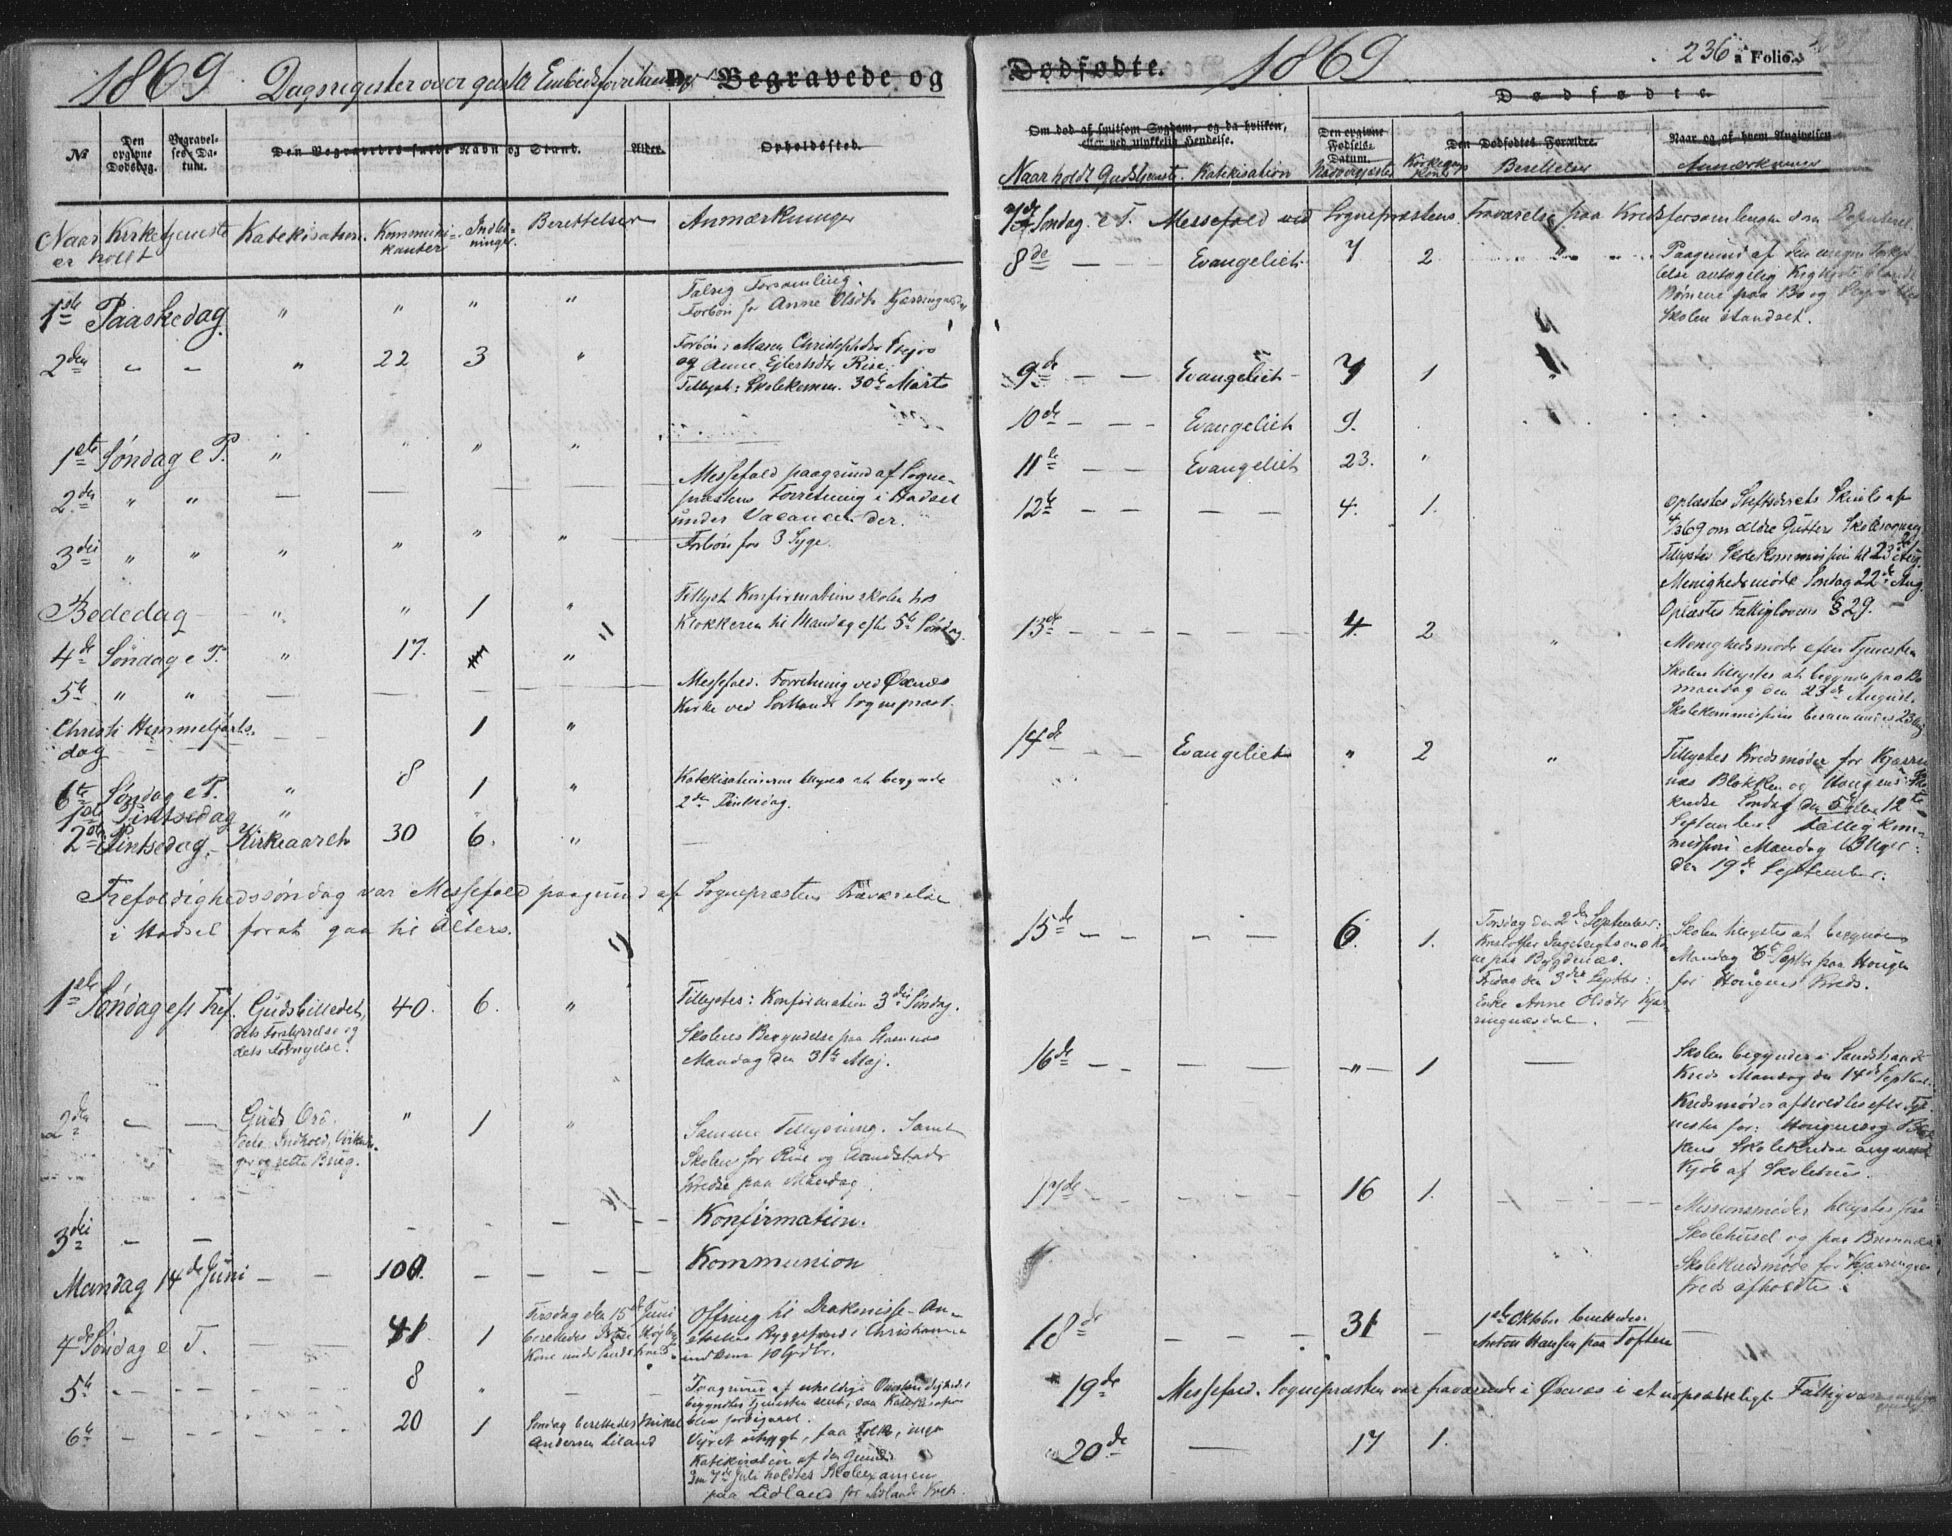 1869 Dagsregister over geistl. Embedsforretninger D. Begravede og
No
Den opgivne Dødsdag.
Begravelses-Datum.
Den Begravedes fulde Navn og Stand.
Alder.
Opholdssted.
Naar Kirketjeneste er holdt
Katekisation.
Kommunikanter
Indledninger.
Berettelser
Anmærkninger
1ste Paaskedag. " " " "
Talrig Forsamling.
Forbøn for Anne Olsdtr Kjærringnesdal
2den - - " 22 3 "
Forbøn: Maren Christophdr
og Anne Ejlertsdtr Rise.
Tillyst: Skolekomm. 30te Marts
1ste Søndag e P. " " " "
2den " " — — —
Messefald paagrund af Sogne-
præstens Forretning i Hadsel
under Vacancen der.
3die " " " " " "
Forbøn for 3 Syge.
Bededag " " 1 "
Tillyst Konfirmationsskolen hos
Klokkeren til Mandag efter 5te Søndag.
4de Søndag e P. " 17. "
5te " " — —
Messefald. Forretning ved Øxnes
Kirke ved Sortlands Sognepræst.
Christi Himmelfarts-
dag 1 "
6te Søndag e P. " 8 1 "
Katekisationerne lyses at begynde
2den Pintsedag.
1ste Pintsedag "
2den Pintsedag. Kirkeaaret 30 6. " —
Trefoldighedssøndag var Messefald paagrund af Sognepræstens Fraværelse
i Hadsel forat gaa til Alters.
1ste Søndag eft Tref. Gudsbilledet, 40. 6. "
dets Forstyrrelse og
dets Fornyelse.
Tillystes: Konfirmation 3die Søndag.
Skolens Begyndelse paa
Mandag den 31te Maj.
2den — — Guds Ord. " 1 "
dets Indhold,
og rette Brug.
Samme Tillysning. Samt
Skolen for Rise og
Kredse paa Mandag
3die — — - - - -
Konfirmation.
Mandag 14de Juni — — 100. — — —
Kommunion
4de Søndag e T. 41 1
Tirsdag den 15de Juni
berettedes
Kone
Offring til Diakonisse-An-
staltens Byggefond i Christiania
indkom 10 Spdlr.
5te - - - 8 " — —
Paagrund af uheldige Omstændigheder
begyndtes Tjenesten sent, saa Katekisation
blev forbigaaet.
6te — — — 20 1
Søndag berettedes Mikal
Andersen Liland
Vejret uhygt, faa Folk, ingen
Katekisation af den Grund
Den 7de Juli holdtes Skoleexamen
paa Lidland for Lidlands Kreds.
Dødfødte. 1869 236 a Folio.
Dødfødte
Om død af smitsom Sygdom, og da hvilken,
eller ved ulykkelig Hendelse.
Den opgivne Fødsels-Datum.
Den Dødfødtes Forældre.
Naar og af hvem Angivelsen
Naar holdt Gudstjeneste. Katekisation
Berettelser
Anmærkninger
7de Søndag e T. Messefald ved Sognepræstens Fraværelse paa Kredsforsamlingen som Deputeret
8de — — Evangeliet 7 2
Paagrund af den
Børnene paa Bø og
Skolen standset.
9de — — Evangeliet - 7 1 "
10de — — Evangeliet 9.
11te — — Evangeliet 23. "
12te — — — — 4. 1.
Oplæstes Stiftsdirekts Skrivels af
4/3 69 om ældre Gutters Skolesøgning
Tillystes Skolekommission til 23de Aug.
Menighedsmøde Søndag 22de Aug
Oplæstes Fattiglovens § 29. —
13de — — — 4. 2 "
Menighedsmøde efter Tjenesten
Skolen tillystes at begynde paa Bø
mandag den 23de August.
Skolekommission berammes 23 Aug
14de - - Evangeliet " 2 "
Tillystes Kredsmøder for Kjærring-
næs Blokken og Hougens Skole-
kredse Søndag den 5te den 12te
September. Fattigkom-
mission Mandag
den 19de September.
15de — — — 6. 1.
Torsdag den 2den September:
Kristoffer Ingebrigtsens Ko-
ne paa Bygdenæs.
Fredag den 3die Septbr:
Enke Anne Olsdtr Kjær-
ringnæsdal.
Skolen tillystes at begynde
Mandag 6te Septbr paa Hougen
for Hougens Kreds.
16de — — — — " 1 —
Skolen begynder i Sandstrands
Kreds Mandag den 14de Septbr.
Kredsmøder afholdtes efter Tje-
nesten for: Hougens og Blok-
kens Skolekredse angaaende
Kjøb af Skolehus.
17de — — — 16 1.
Missionsmøder tillystes paa
Skolehuset og paa
Skolekredsmøde for Kjærringnæs
Kreds afholdtes.
18de — — — 31 —
1ste Oktober berettedes
Anton Hansen paa Toften
19de Messefald. Sognepræsten var fraværende i Øxnæs i et uopsætteligt
20de — 17 1.